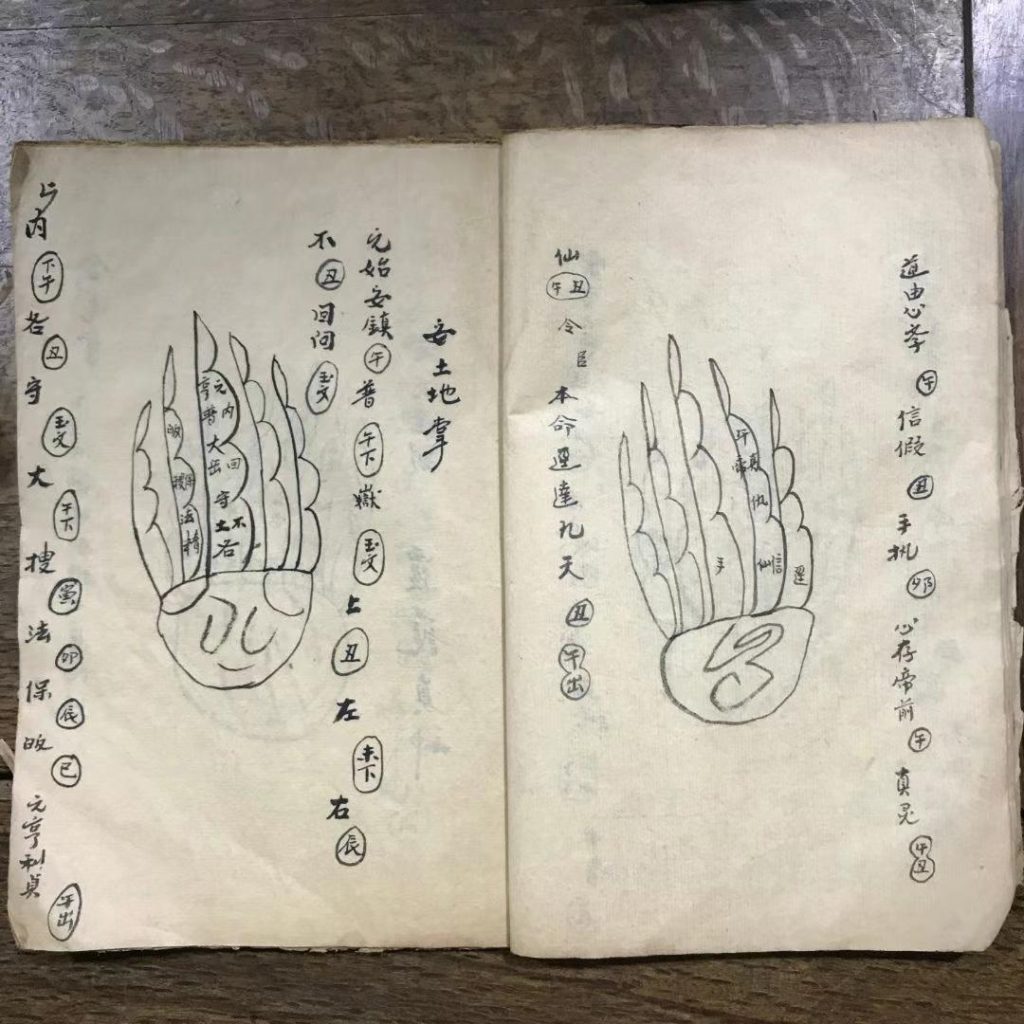 道由心孝午信假丑手执卯心存帝前午真灵午丑
斗真
帝
手
仙信
仙午丑令臣
本命達九天丑午出
安土地掌
元始安鎮午普午下嶽玉文上丑左未下右辰
不丑回问玉文
元内
亨普
大回
岳
守不
土各
皈
法
内下午各丑守玉文大午下搜寅法卯保辰皈巳元亨利貞午出